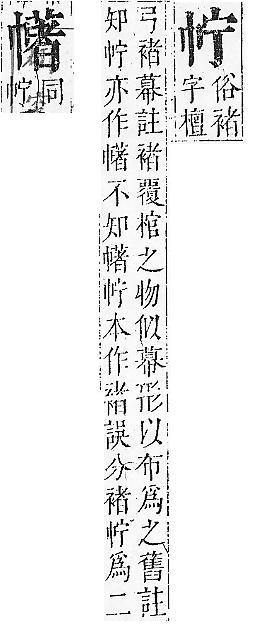 㡆俗褚
字檀
弓褚幕註褚覆棺之物似幕形以布爲之舊註
知㡆亦作幮不知幮㡆本作褚誤分褚㡆爲二
同
㡆